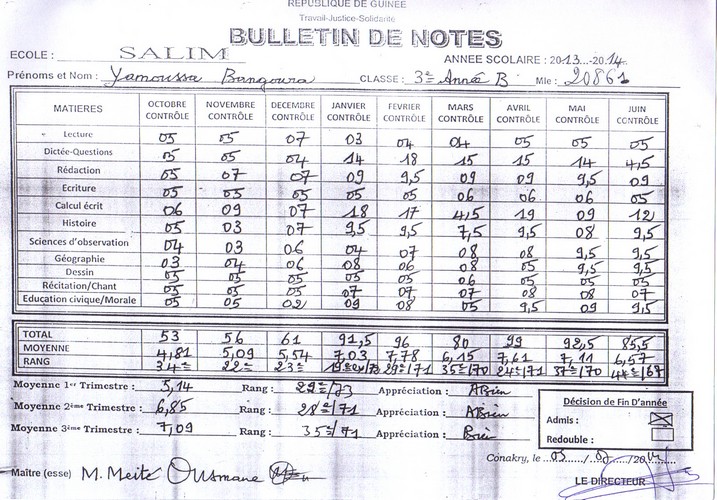 REPUBLIQUE DE GUINEE
Travail-Justice-Solidarité
BULLETIN DE NOTES
ECOLE : SALIM ANNEE SCOLAIRE : 2013...-2014
Prénoms et Nom : Yamoussa Bangoura CLASSE : 3è Année B Mle : 20861
MATIERES OCTOBRE CONTRÔLE NOVEMBRE CONTRÔLE DECEMBRE CONTRÔLE JANVIER CONTRÔLE FEVRIER CONTRÔLE MARS CONTRÔLE AVRIL CONTRÔLE MAI CONTRÔLE JUIN CONTRÔLE
Lecture 05 05 07 03 04 04 05 05 05
Dictée-Questions 05 05 04 14 18 15 15 14 4,5
Rédaction 05 07 07 09 9,5 09 09 9,5 09
Ecriture 05 05 05 05 05 06 06 06 05
Calcul écrit 06 09 07 18 17 4,5 19 09 12
Histoire 05 03 07 9,5 9,5 7,5 9,5 08 9,5
Sciences d'observation 04 03 06 04 07 08 08 9,5 9,5
Géographie 03 04 06 08 06 08 05 9,5 9,5
Dessin 05 05 05 05 05 06 05 05 05
Récitation/Chant 05 05 05 07 07 07 08 08 07
Education civique/Morale 05 05 02 09 08 05 9,5 09 9,5
TOTAL 53 56 61 91,5 96 80 99 92,5 85,5
MOYENNE 4,81 5,09 5,54 7,03 7,78 6,15 7,61 7,11 6,57
RANG 34è 22è 23è 29è/71 35è/70 24è/71 37è/70
Moyenne 1er Trimestre : 5,14 Rang : 29è/73 Appréciation : ABien
Moyenne 2ème Trimestre : 6,85 Rang : 28è/71 Appréciation : ABien
Moyenne 3ème Trimestre : 7,09 Rang : 35è/71 Appréciation : Bien
Décision de Fin D'année
Admis :
Redouble :
Conakry, le 05
Maître (esse) M. Meite Ousmane
LE DIRECTEUR